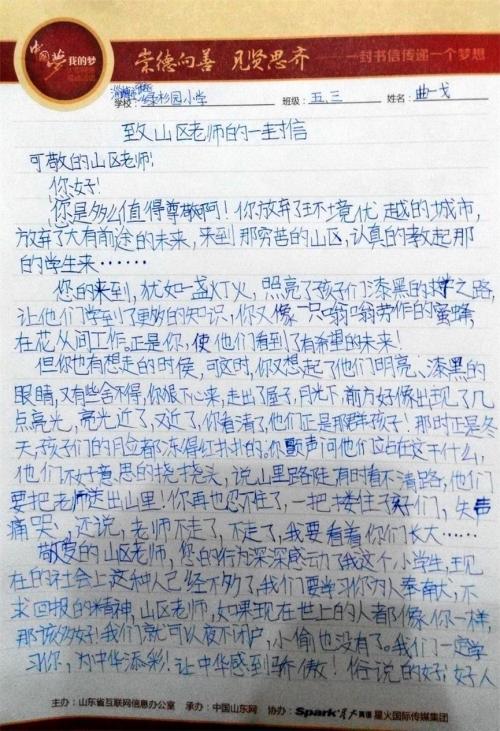 中国梦 我的梦
崇德向善 见贤思齐 一封书信传递一个梦想
学校: 绿杉园小学 班级: 五、三 姓名: 曲一戈
致山区老师的一封信
可敬的山区老师!
你好!
您是多么值得尊敬啊!你放弃了环境优越的城市,
放弃了大有前途的未来,来到那穷苦的山区,认真的教起那
的学生来……
您的来到,犹如一盏灯火,照亮了孩子们漆黑的求学之路,
让他们学到了更多的知识,你又像一只嗡嗡劳作的蜜蜂,
在花丛间工作,正是你,使他们看到了有希望的未来!
但你也有想走的时侯,可这时,你又想起了他们明亮、漆黑的
眼睛,又有些舍不得,你狠下心来,走出了屋子,月光下,前方好像出现了几
点亮光,亮光近了,又近了,你看清了,他们正是那群孩子,那时正是冬
天,孩子们的脸都冻得红扑扑的。你颤声问他们应在这干什么,
他们不好意思的挠挠头,说山里路陡有时看不清路,他们
要把老师送出山里!你再也忍不住了,一把搂住了孩子们,失声
痛哭,还说,老师不走了,不走了,我要看着你们长大……
敬爱的山区老师,您的行为深深感动了我这个小学生,现
在的社会上这种人已经不多了,我们要学习你为人奉献,不
求回报的精神,山区老师,如果现在世上的人都像你一样,
那该多好!我们就可以夜不闭户,小偷也没有了。我们一定学
习你,为中华添彩!让中华感到骄傲!俗说的好,好人
主办:山东省互联网信息办公室 承办:中国山东网 协办:Spark 星火国际传媒集团